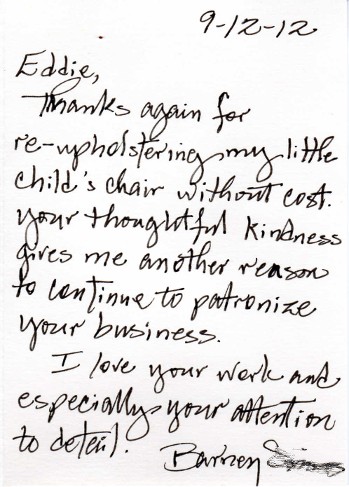 9-12-12
Eddie,
Thanks again for
re-upholstering my little
child's chair without cost.
your thoughtful kindness
gives me another reason
to continue to patronize
your business.
I love your work and
especially your attention
to detail.
Barney